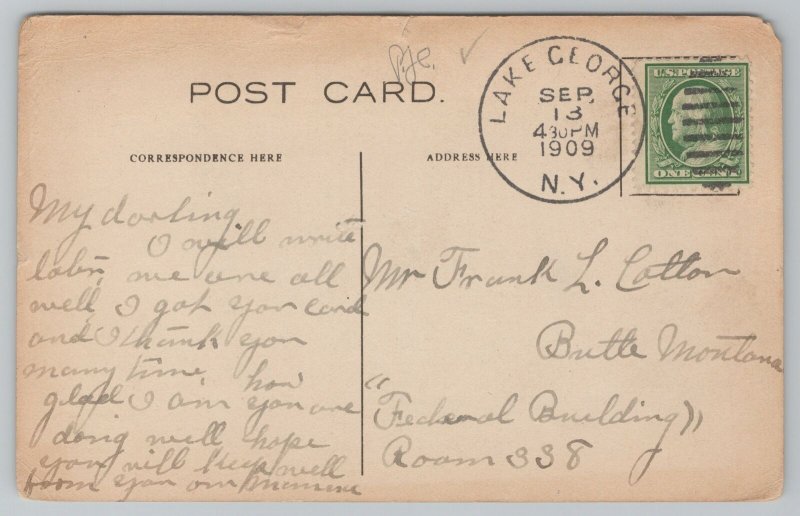 P.J.C.
POST CARD.
CORRESPONDENCE HERE
ADDRESS HERE
LAKE GEORGE
SEP.
13
430PM
1909
N.Y.
U.S. POSTAGE
ONE CENT
My darling
I will write
later, we are all
well, I got your card
and I thank you
many time how
glad I am you are
doing well hope
you will keep well
from your own Mamma
Mr Frank L. Cotton
Butte Montana
"Federal Building"
Room 338